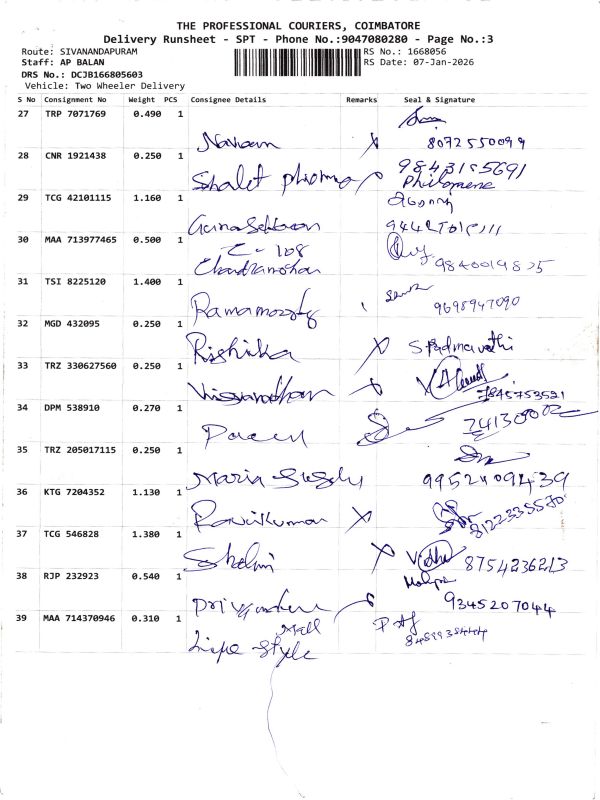 THE PROFESSIONAL COURIERS, COIMBATORE
Delivery Runsheet - SPT - Phone No.:9047080280 - Page No.:3
Route: SIVANANDAPURAM
RS No.: 1668056
Staff: AP BALAN
RS Date: 07-Jan-2026
DRS No.: DCJB166805603
Vehicle: Two Wheeler Delivery
S No Consignment No Weight PCS Consignee Details Remarks Seal & Signature
27 TRP 7071769 0.490 1
Naveen 8072550099
28 CNR 1921438 0.250 1
Shalet pharma 9843155691
Philomene
29 TCG 42101115 1.160 1
30 MAA 713977465 0.500 1
C-108
Chandramohan 9840019825
31 TSI 8225120 1.400 1
Ramamoorthy 9698947090
32 MGD 432095 0.250 1
Rishika S Padmavathi
33 TRZ 330627560 0.250 1
Viswanathan 7845753521
34 DPM 538910 0.270 1
35 TRZ 205017115 0.250 1
Maria 9952409439
36 KTG 7204352 1.130 1
Ravikumar 8122335570
37 TCG 546828 1.380 1
Shalini 8754236213
38 RJP 232923 0.540 1
9345207044
39 MAA 714370946 0.310 1
Style